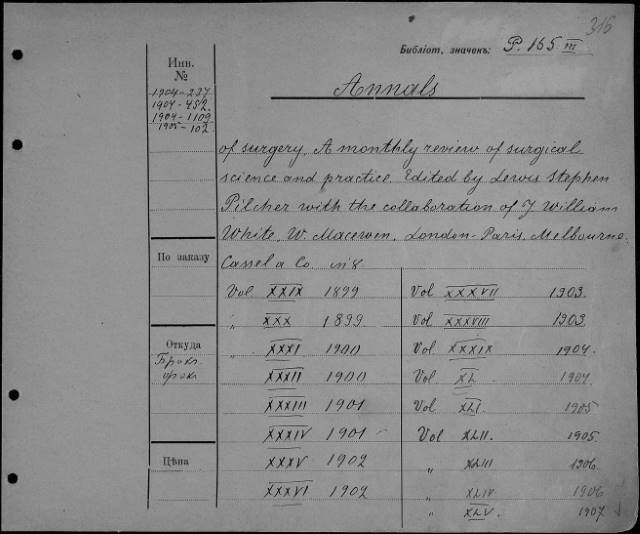 315
Библіот. значекъ: P. 165 III
Инв. №
1904-237
1904-452.
1904-1109
1905-102.
Annals
of surgery. A monthly review of surgical
science and practice. Edited by Lewis Stephen
Pilcher with the collaboration of J William
White, W. Macewen. London-Paris. Melbourne.
Cassel a Co. in 8
По заказу
Откуда
Цѣна
Vol XXIX 1899
„ XXX 1899.
„ XXXI 1900
XXXII 1900
XXXIII 1901
XXXIV 1901
XXXV 1902
XXXVI 1902
Vol XXXVII 1903.
Vol XXXVIII 1903.
Vol XXXIX 1904.
Vol XL 1904
Vol XLI. 1905
Vol XLII. 1905.
„ XLIII 1906.
„ XLIV 1906
„ XLV. 1907